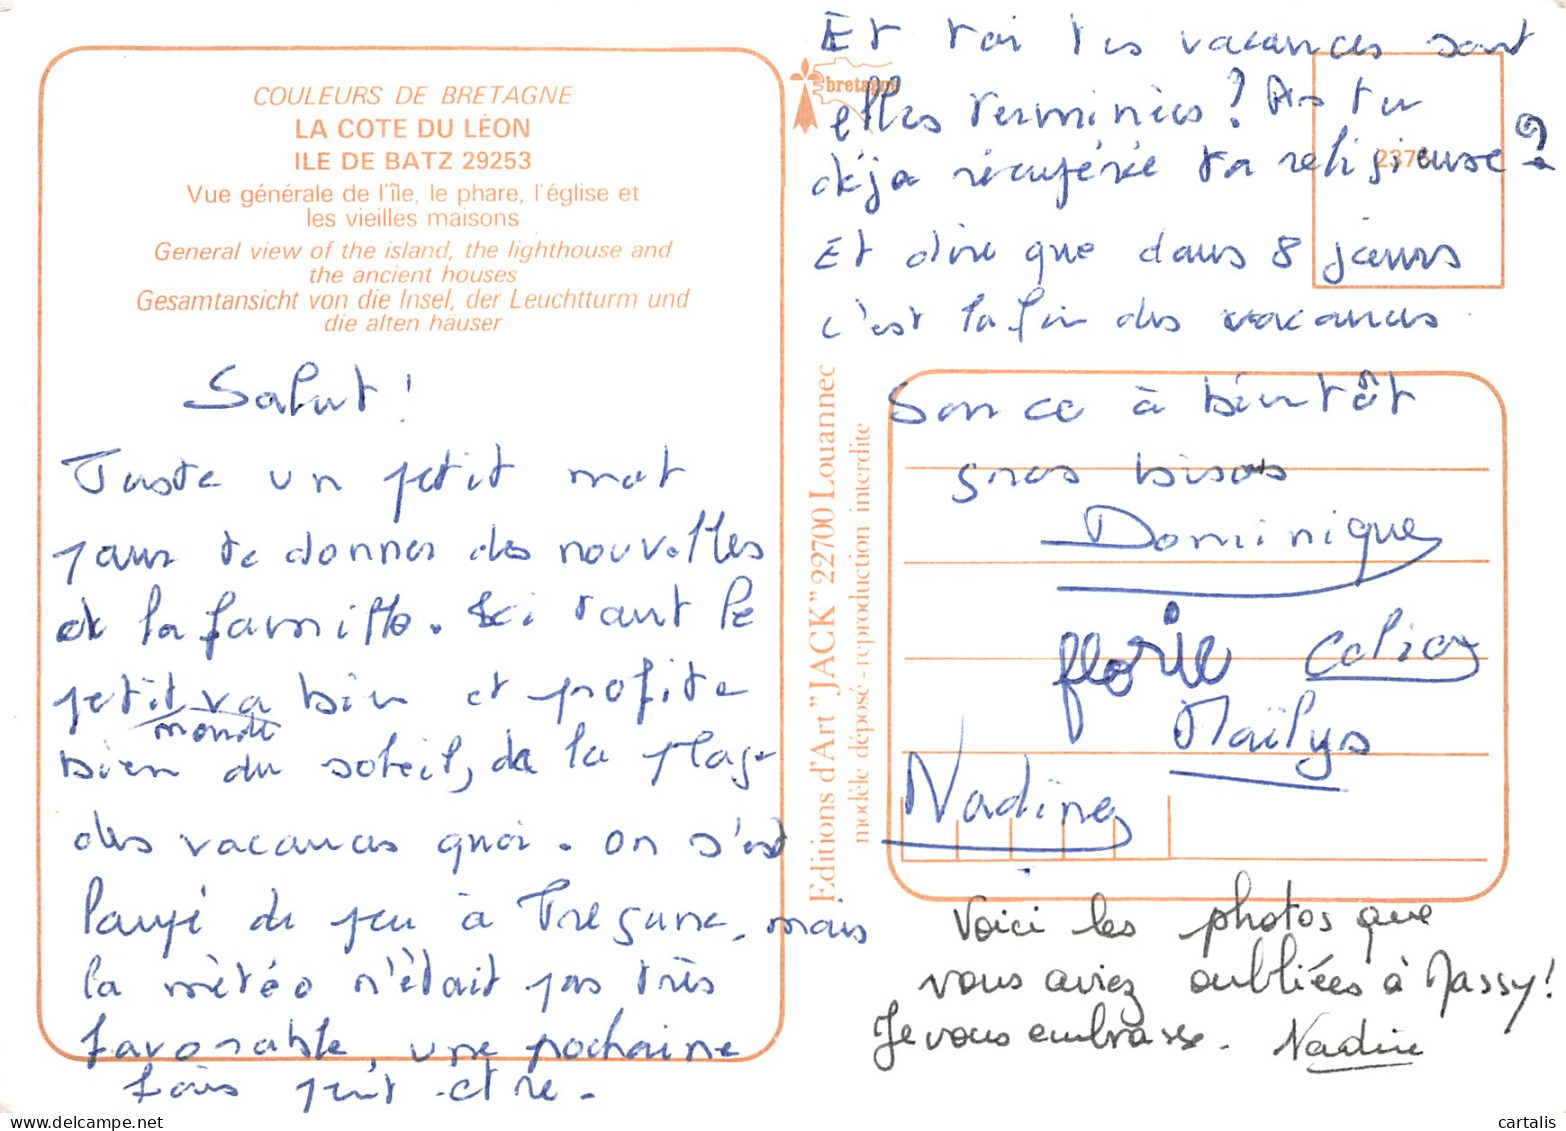 COULEURS DE BRETAGNE
LA COTE DU LÉON
ILE DE BATZ 29253
Vue générale de l'île, le phare, l'église et
les vieilles maisons
General view of the island, the lighthouse and
the ancient houses
Gesamtansicht von die Insel, der Leuchtturm und
die alten häuser
Salut !
Juste un petit mot
pour te donner des nouvelles
de la famille. Ici tout le
petit va bien et profite
monde
bien du soleil, de la plage
des vacances quoi. On s'est
loupé de peu à Tregunc, mais
la météo n'était pas très
favorable, une pochaine
fois peut-etre.
bretagne
Editions d'Art "JACK" 22700 Louannec
modèle déposé - reproduction interdite
Et toi tes vacances sont
elles terminées ? As tu
déja récupérée ta religieuse ?
237
Et dire que dans 8 jours
c'est la fin des vacances
Son ce à bientôt
gros bisos
Dominique
florie
Maïlys
Nadine
Voici les photos que
vous aviez oubliées à Massy !
Je vous embrasse. Nadine
cartalis